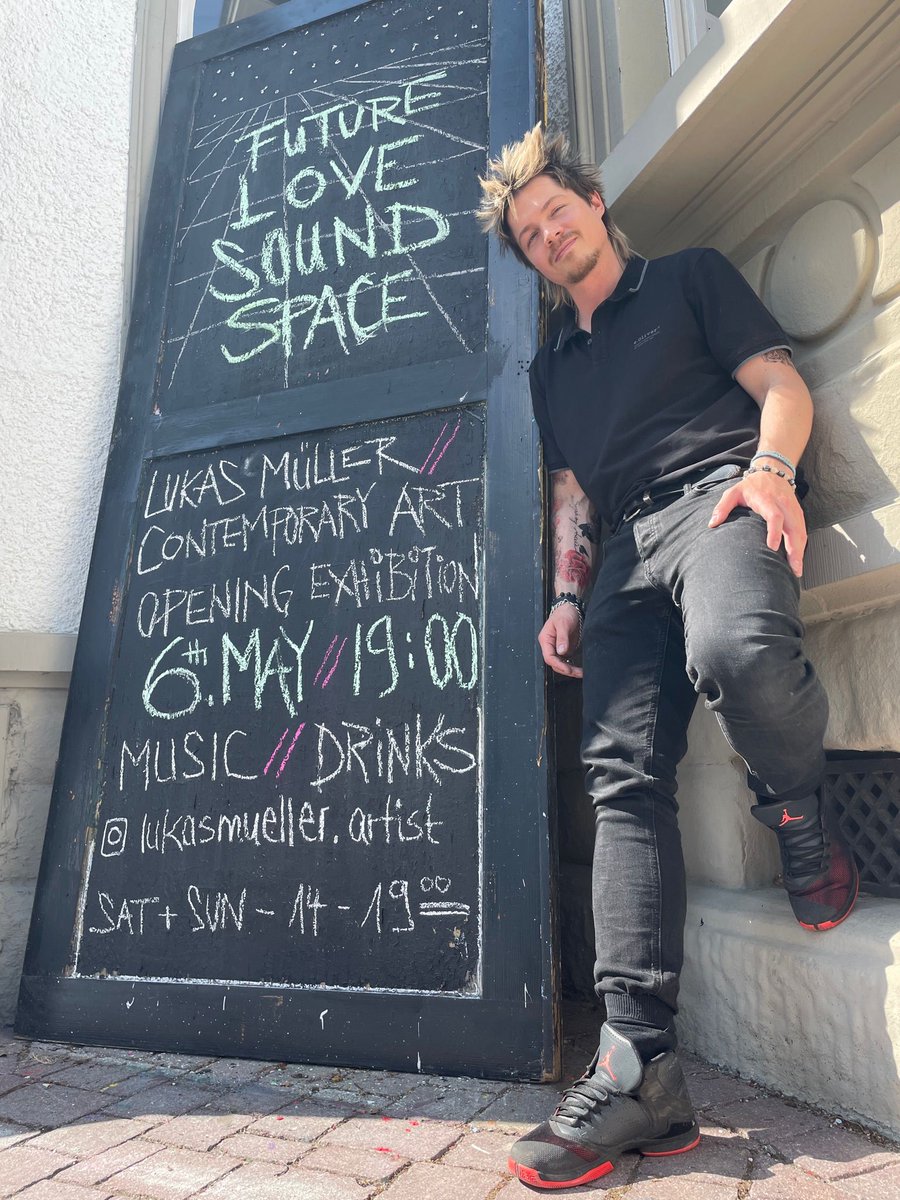 FUTURE
LOVE
SOUND
SPACE
LUKAS MÜLLER //
CONTEMPORARY ART
OPENING EXHIBITION
6th. MAY // 19:00
MUSIC // DRINKS
lukasmueller.artist
SAT + SUN - 14 - 19 00